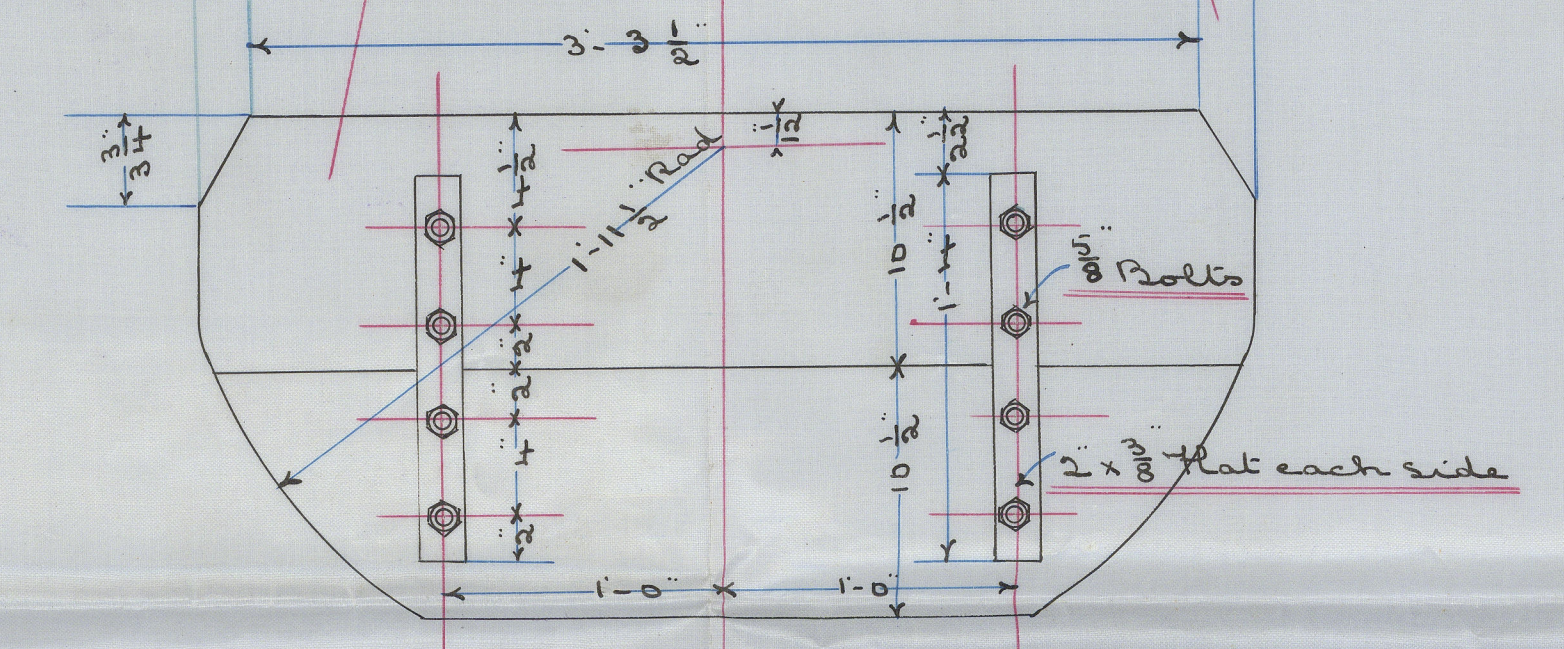 3'- 3 1/2"
3 3/4"
4 1/2"
4"
2"
2"
4"
2"
1'-11 1/2" Rad
1 1/2"
10 1/2"
10 1/2"
2 1/2"
1'-4"
5/8" Bolts
2" x 3/8" flat each side
1'-0"
1'-0"